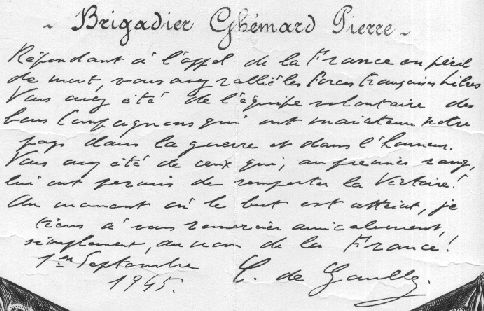 - Brigadier Ghémard Pierre -
Répondant à l'appel de la France en péril
de mort, vous avez rallié les Forces Françaises Libres
Vous avez été de l'équipe volontaire des
bons Compagnons qui ont maintenu notre
pays dans la guerre et dans l'honneur.
Vous avez été de ceux qui, au premier rang
lui ont permis de remporter la Victoire!
Au moment où le but est atteint, je
tiens à vous remercier amicalement,
simplement, au nom de la France!
1er Septembre
1945.
C. de Gaulle